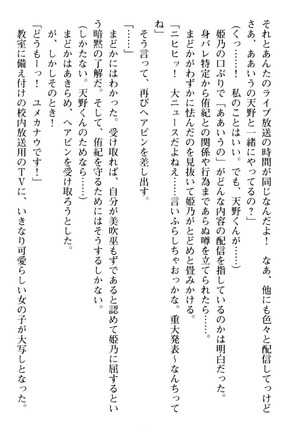 それとあんたのライブ放送の時間が同じなんだよ！　なあ、他にも色々と配信してっけど
さあ、ああいうの天野と一緒にやってるの？」
(くっ……！　私のことはいい。でも、天野くんが……)
姫乃の口ぶりで「ああいうの」がどんな内容の配信を指しているのかは明白だった。
身バレ特定から侑紀との関係や行為まであらぬ噂を立てられたら……。
まどかがわずかに怯んだのを見抜いて姫乃がとどめと畳みかける。
「ニヒヒッ！　大ニュースだよねぇ……言いふらしちゃおっかな。重大発表～なんちって
ね」
そう言って、再びヘアピンを差し出す。
まどかにはわかった。受け取れば、自分が美吹巫もずであると認めて姫乃に屈するとい
う暗黙の了解だ。そして、侑紀を守るためにはそうするしかない。
(しかたない、天野くんのためなら……)
まどかはあきらめ、ヘアピンを受け取ろうとした。
が、しかしそのとき！
「どうもーっ！　ユメカナウです！」
教室に備え付けの校内放送用のTVに、いきなり可愛らしい女の子が大写しとなった。